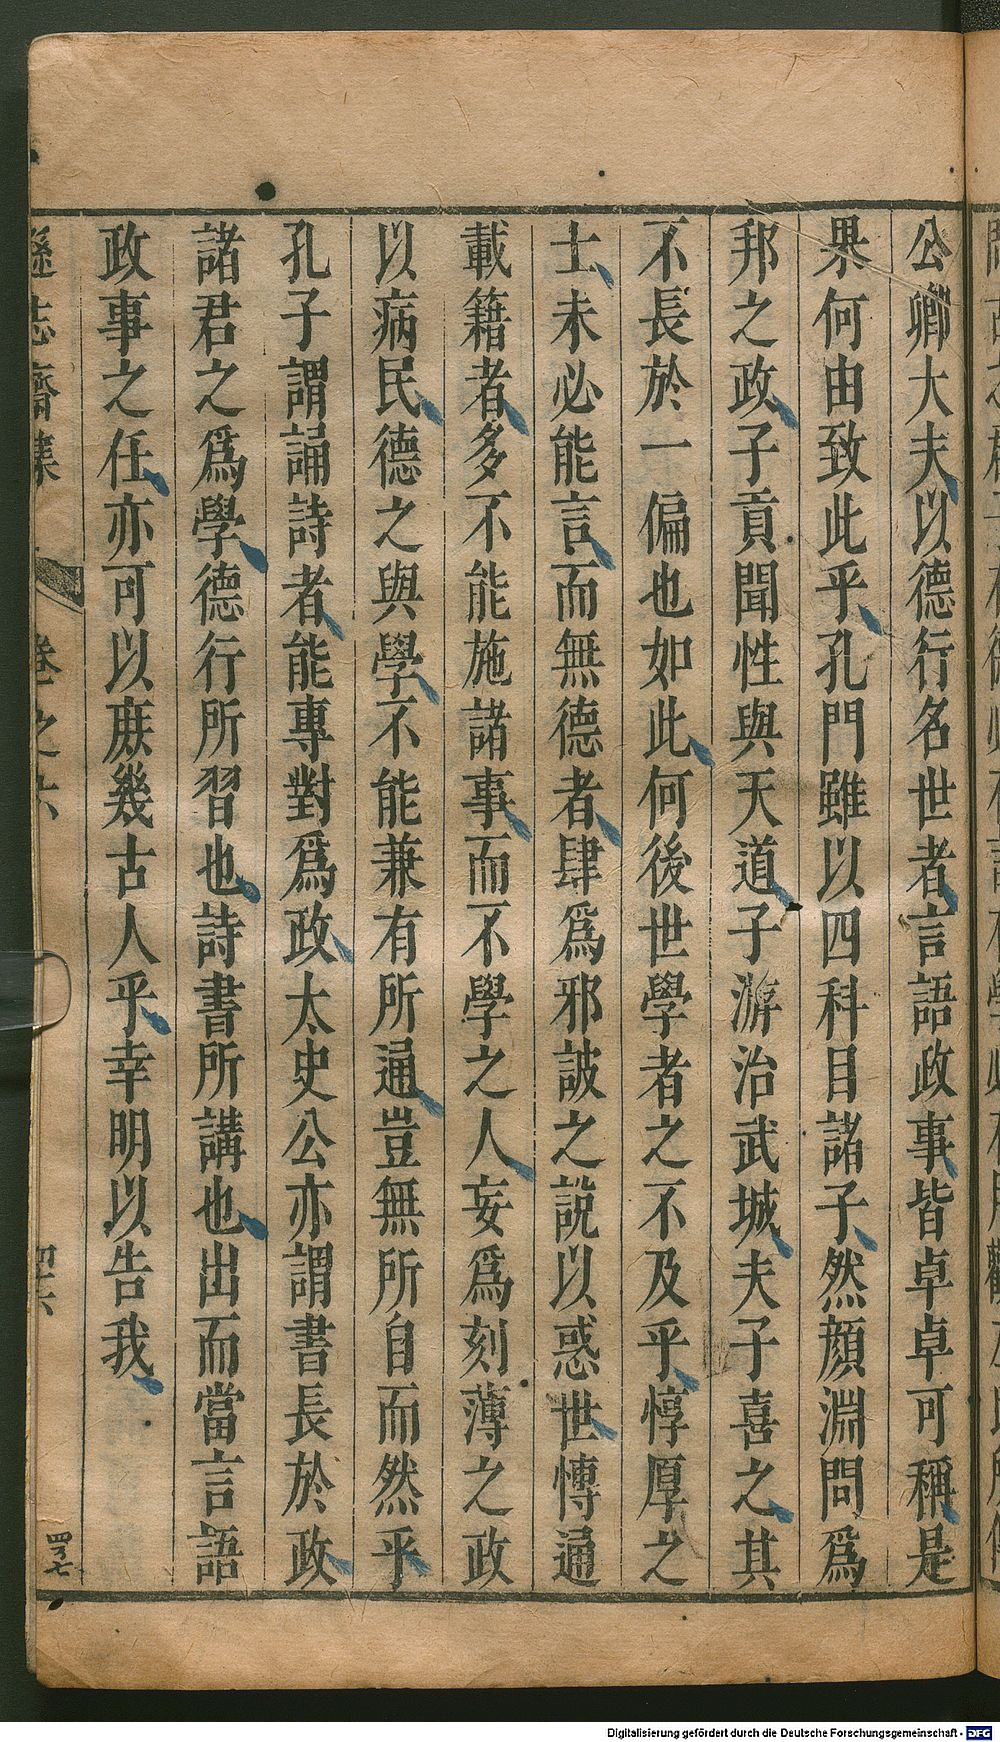 公卿大夫以德行名世者言語政事皆卓卓可稱是
果何由致此乎孔門雖以四科目諸子然顏淵問爲
邦之政子貢聞性與天道子游治武城夫子喜之其
不長於一偏也如此何後世學者之不及乎惇厚之
士未必能言而無德者肆爲邪詖之說以惑世慱通
載籍者多不能施諸事而不學之人妄爲刻薄之政
以病民德之與學不能兼有所通豈無所自而然乎
孔子謂誦詩者能專對爲政太史公亦謂書長於政
諸君之爲學德行所習也詩書所講也出而當言語
政事之任亦可以庶幾古人乎幸明以告我
遜志齋集 卷之六 四十六
Digitalisierung gefördert durch die Deutsche Forschungsgemeinschaft - DFG